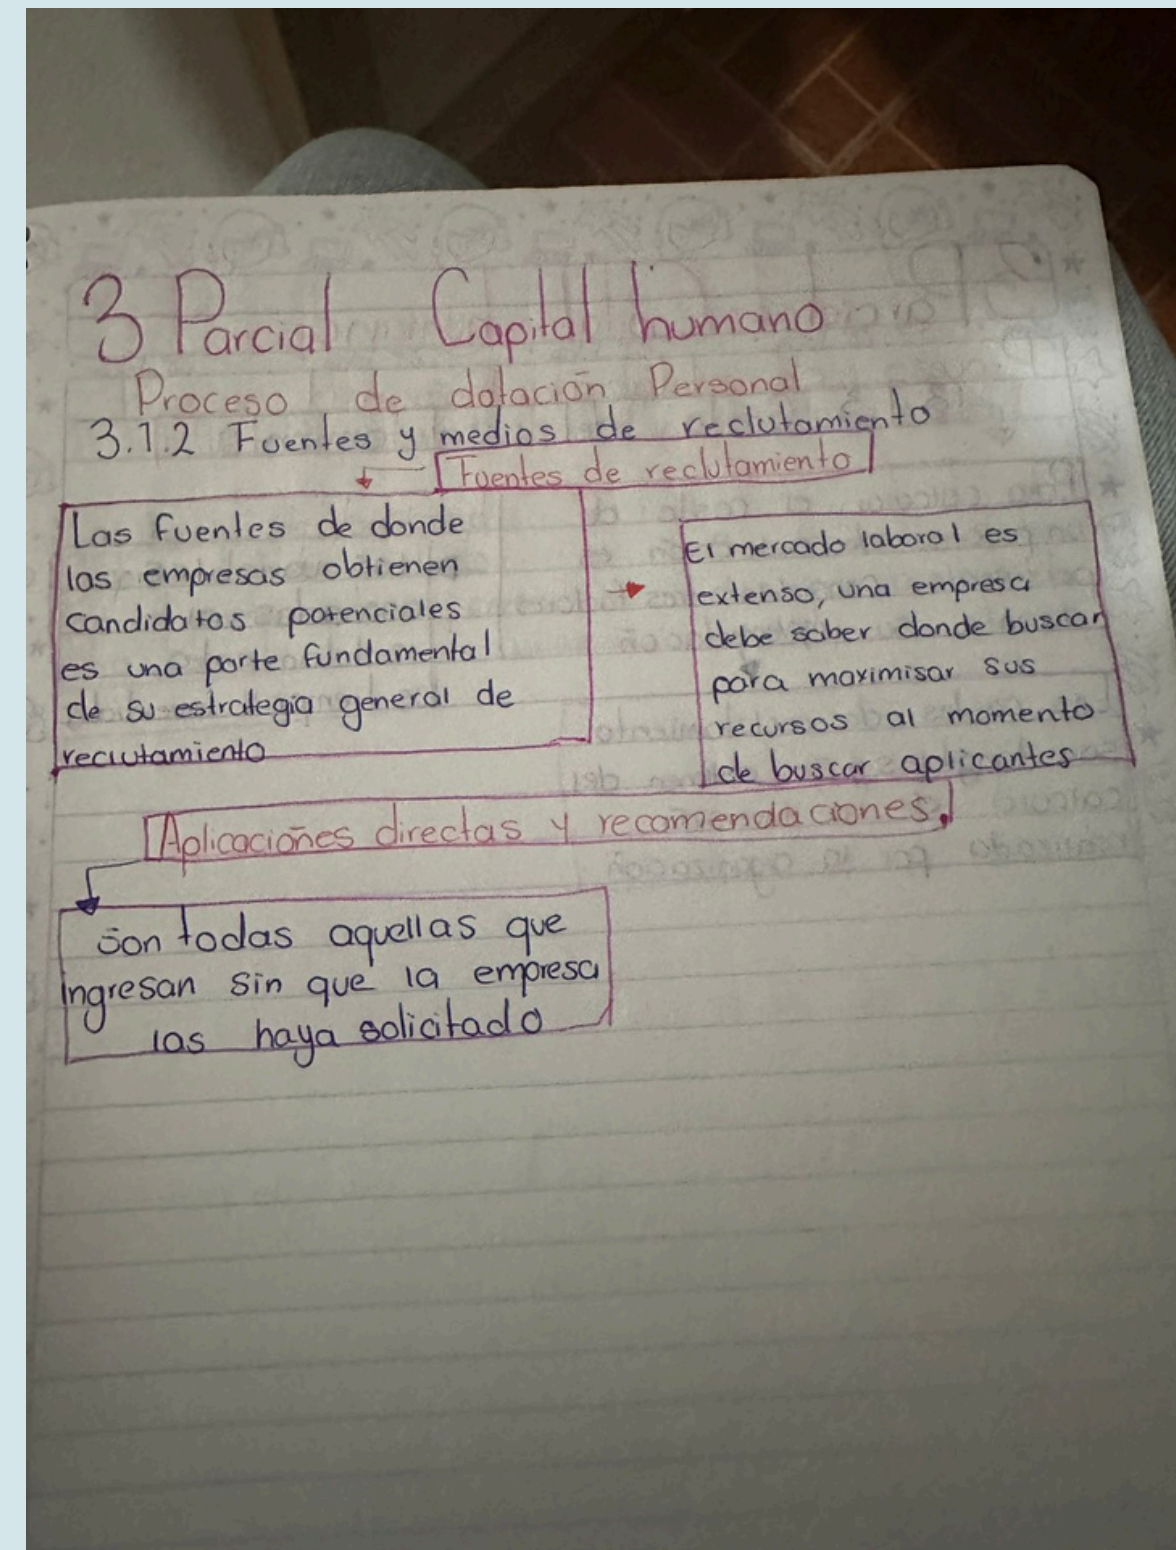 3 Parcial Capital humano
Proceso de dotación Personal
3.1.2 Fuentes y medios de reclutamiento
Fuentes de reclutamiento
Las fuentes de donde
las empresas obtienen
candidatos potenciales
es una parte fundamental
de su estrategia general de
reclutamiento
El mercado laboral es
extenso, una empresa
debe saber donde buscar
para maximisar sus
recursos al momento
de buscar aplicantes
Aplicaciones directas y recomendaciones.
Son todas aquellas que
ingresan sin que la empresa
las haya solicitado